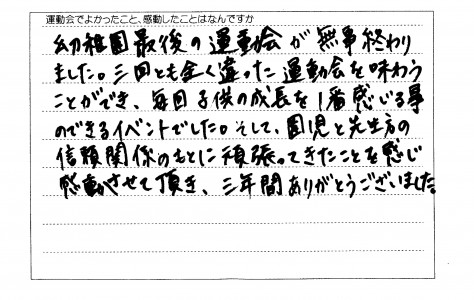 運動会でよかったこと、感動したことはなんですか
幼稚園最後の運動会が無事終わり
ました。三回とも全く違った運動会を味わう
ことができ、毎回子供の成長を1番感じる事
のできるイベントでした。そして、園児と先生方の
信頼関係のもとに頑張ってきたことを感じ
感動させて頂き、三年間ありがとうございました。